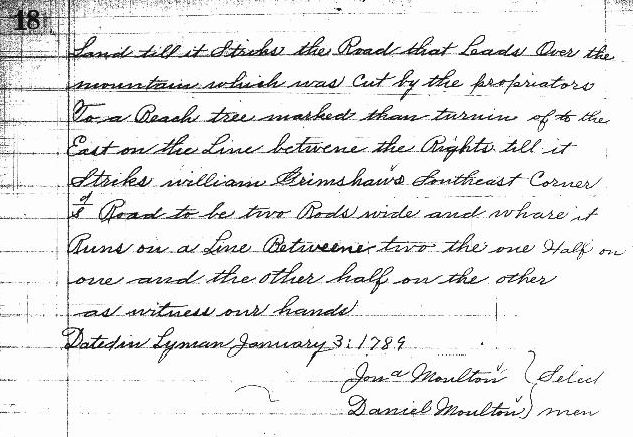 18
Land till it Striks the Road that Leads Over the
mountain which was Cut by the propriators
To a Beach tree marked than turnin of to the
East on the Line betwene the Rights till it
Striks william Grimshaws Southeast Corner
sd Road to be two Rods wide and whare it
Runs on a Line Betweene two the one Half on
one and the other half on the other
as witness our hands
Dated in Lyman January 3: 1789
Jona Moulton } Select
Daniel Moulton } men